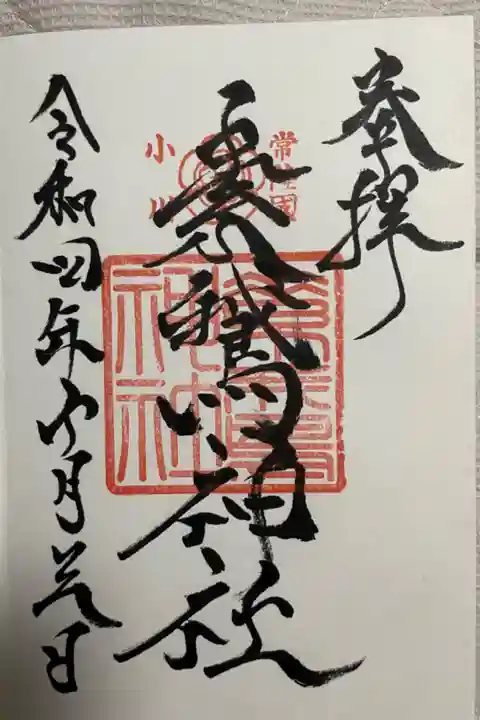 奉拝
常陸国
小川
素鵞神社
素鵞
神社
令和四年 月 日